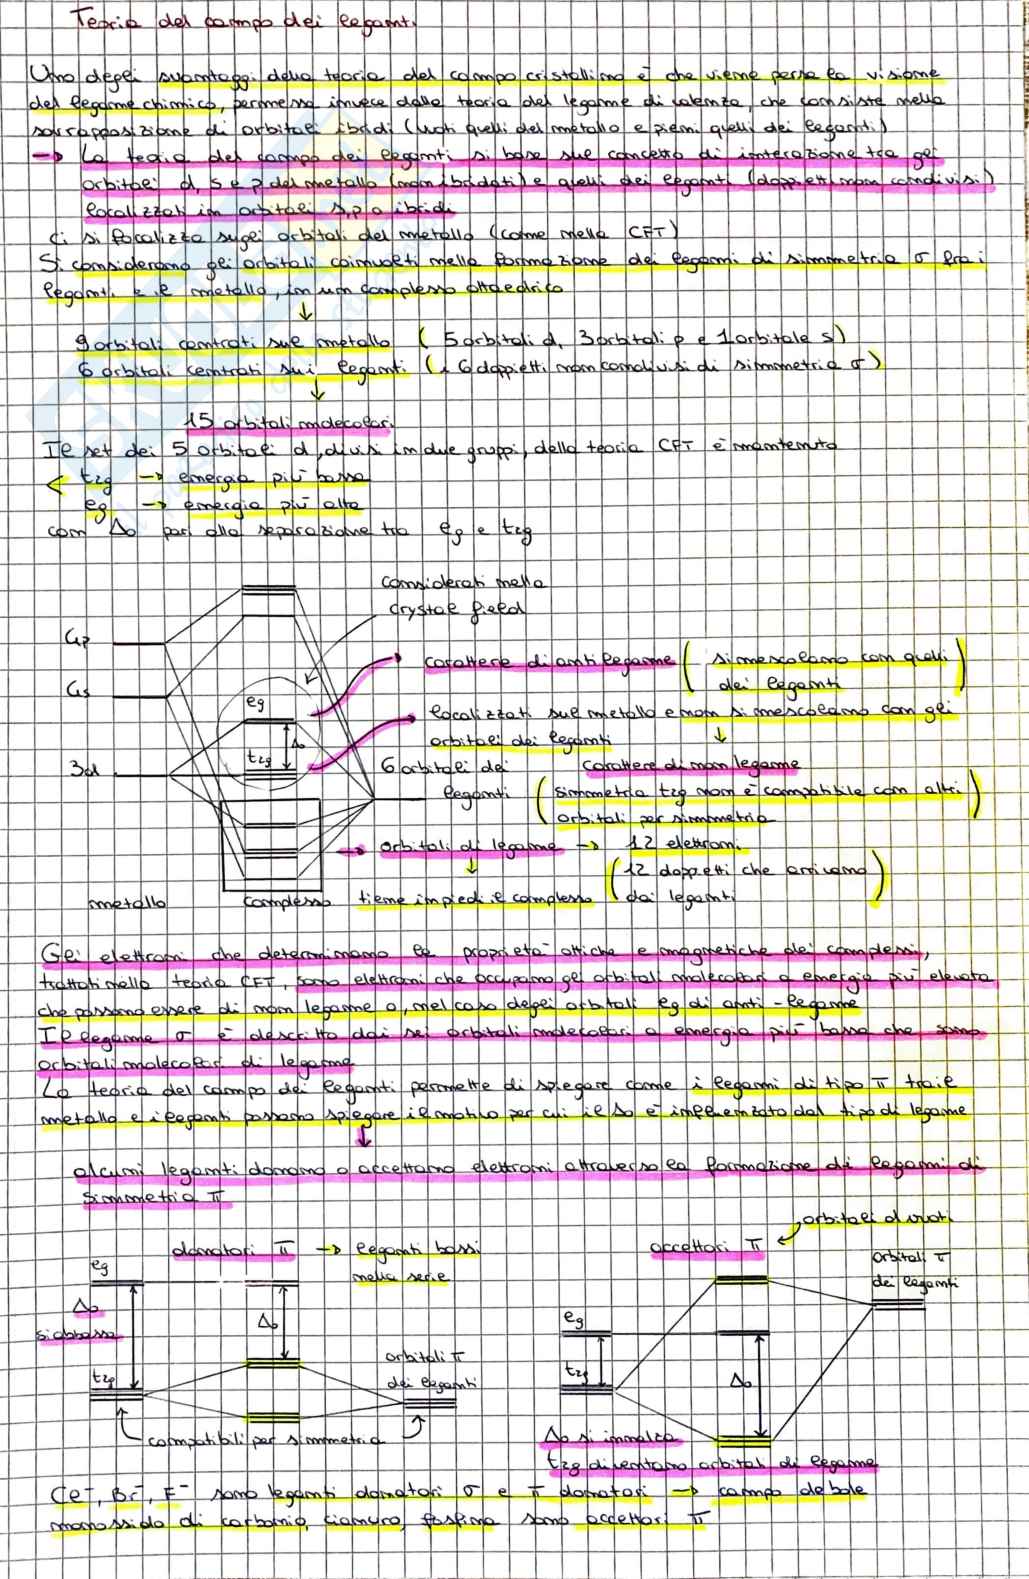 Teoria del campo dei leganti
Uno degli svantaggi della teoria del campo cristallino è che viene persa la visione
del legame chimico, permessa invece dalla teoria del legame di valenza, che consiste nella
sovrapposizione di orbitali ibridi (vuoti quelli del metallo e pieni quelli dei leganti)
→ La teoria del campo dei leganti si basa sul concetto di interazione tra gli
orbitali d, s e p del metallo (non ibridati) e quelli dei leganti (doppietti non condivisi)
localizzati in orbitali s, p o ibridi
Ci si focalizza sugli orbitali del metallo (come nella CFT)
Si considerano gli orbitali coinvolti nella formazione dei legami di simmetria σ fra i
leganti e il metallo, in un complesso ottaedrico
↓
9 orbitali centrati sul metallo (5 orbitali d, 3 orbitali p e 1 orbitale s)
6 orbitali centrati sui leganti (i 6 doppietti non condivisi di simmetria σ)
↓
15 orbitali molecolari
Il set dei 5 orbitali d, divisi in due gruppi, della teoria CFT è mantenuto
t2g → energia più bassa
eg → energia più alta
con Δo pari alla separazione tra eg e t2g
considerati nella
crystal field
4p
4s
3d
eg
Δo
t2g
carattere di antilegame (si mescolano con quelli
dei leganti)
localizzati sul metallo e non si mescolano con gli
orbitali dei leganti ↓
6 orbitali dei
leganti
carattere di non legame
(simmetria t2g non è compatibile con altri
orbitali per simmetria)
→ orbitali di legame → 12 elettroni
↓
(12 doppietti che arrivano
dai leganti)
metallo
complesso
tiene in piedi il complesso
Gli elettroni che determinano le proprietà ottiche e magnetiche dei complessi,
trattati nella teoria CFT, sono elettroni che occupano gli orbitali molecolari a energia più elevata
che possono essere di non legame o, nel caso degli orbitali eg di anti-legame
Il legame σ è descritto dai sei orbitali molecolari a energia più bassa che sono
orbitali molecolari di legame
La teoria del campo dei leganti permette di spiegare come i legami di tipo π tra il
metallo e i leganti possano spiegare il motivo per cui il Δo è influenzato dal tipo di legame
↓
alcuni leganti donano o accettano elettroni attraverso la formazione di legami di
simmetria π
donatori π → leganti bassi
nella serie
eg
Δo
si abbassa
t2g
Δo
orbitali π
dei leganti
compatibili per simmetria
orbitali d vuoti
accettori π
orbitali π
dei leganti
eg
t2g
Δo
Δo si innalza
t2g diventano orbitali di legame
Cl⁻, Br⁻, F⁻ sono leganti donatori σ e π donatori → campo debole
monossido di carbonio, cianuro, fosfina sono accettori π